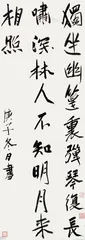 獨坐幽篁裏彈琴復長
嘯深林人不知明月來
相照
庚子冬月書